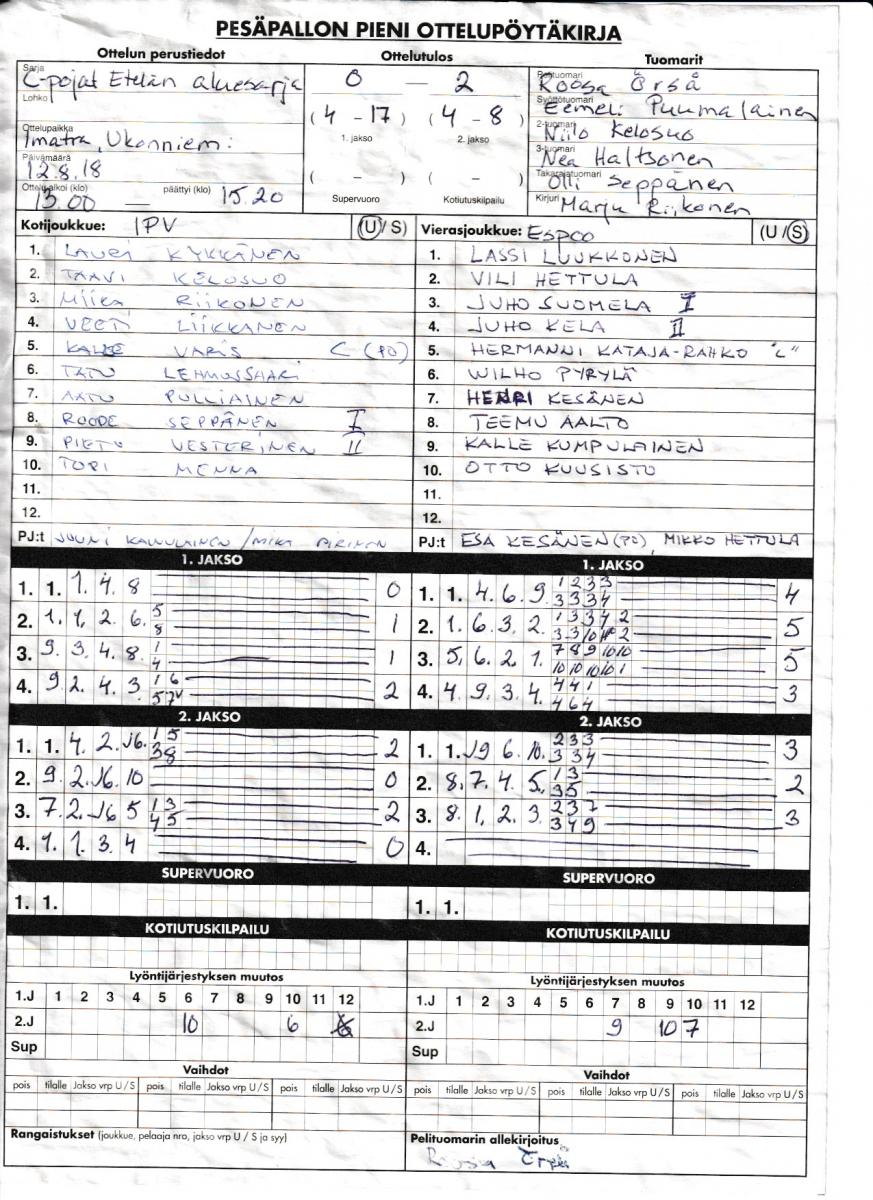 PESÄPALLON PIENI OTTELUPÖYTÄKIRJA
Ottelun perustiedot
Ottelutulos
Tuomarit
Sarja
C-pojat Etelän aluesarja
Lohko
Ottelupaikka
Imatra, Ukonniemi
Päivämäärä
12.8.18
Ottelu alkoi (klo) päättyi (klo)
13.00 — 15.20
0 — 2
(4 - 17) (4 - 8)
1. jakso 2. jakso
( - ) ( - )
Supervuoro Kotiutuskilpailu
Pelituomari
Roosa Örså
Syöttötuomari
Eemeli Puumalainen
2-tuomari
Niilo Kelosuo
3-tuomari
Nea Haltsonen
Takarajatuomari
Olli Seppänen
Kirjuri
Marju Riikonen
Kotijoukkue: IPV (U/S)
1. LAURI KYKKÄNEN
2. TAAVI KELOSUO
3. MIIKA RIIKONEN
4. VEETI LIIKKANEN
5. KALLE VARIS C (PO)
6. TATU LEHMUSSAARI
7. AATU PULLIAINEN
8. ROOPE SEPPÄNEN I
9. PIETU VESTERINEN II
10. TOPI MENNA
11.
12.
PJ:t JOUNI /MIKA
Vierasjoukkue: ESPOO (U/S)
1. LASSI LUUKKONEN
2. VILI HETTULA
3. JUHO SUOMELA I
4. JUHO KELA II
5. HERMANNI KATAJA-RAHKO "C"
6. WILHO PYRYLÄ
7. HENRI KESÄNEN
8. TEEMU AALTO
9. KALLE KUMPULAINEN
10. OTTO KUUSISTO
11.
12.
PJ:t ESA KESÄNEN (PO), MIKKO HETTULA
1. JAKSO
1. 1. 1. 4. 8 0
2. 1. 1. 2. 6. 5 8 1
3. 9. 3. 4. 8. 1 4 1
4. 9 2. 4. 3. 1 6 5 7V 2
2. JAKSO
1. 1. 4. 2. J6. 1 5 3 8 2
2. 9. 2. J6. 10 0
3. 7. 2. J6 5 1 3 4 5 2
4. 1. 1. 3. 4 0
SUPERVUORO
1. 1.
KOTIUTUSKILPAILU
1. JAKSO
1. 1. 4. 6. 9. 1 2 3 3 3 3 3 4 4
2. 1. 6. 3. 2. 1 3 3 4 2 3 3 10 2 5
3. 5, 6. 2. 1. 7 8 9 10 10 10 10 10 10 1 5
4. 4. 9. 3. 4. 4 4 1 4 6 4 3
2. JAKSO
1. 1. J9 6. 10. 2 3 3 3 3 4 3
2. 8, 7. 4. 5, 1 3 3 5 2
3. 8. 1, 2. 3. 2 3 7 3 4 9 3
4.
SUPERVUORO
1. 1.
KOTIUTUSKILPAILU
Lyöntijärjestyksen muutos
1.J 1 2 3 4 5 6 7 8 9 10 11 12
2.J 10 6
Sup
Vaihdot
pois tilalle Jakso vrp U/S pois tilalle Jakso vrp U/S pois tilalle Jakso vrp U/S
Rangaistukset (joukkue, pelaaja nro, jakso vrp U/S ja syy)
Lyöntijärjestyksen muutos
1.J 1 2 3 4 5 6 7 8 9 10 11 12
2.J 9 10 7
Sup
Vaihdot
pois tilalle Jakso vrp U/S pois tilalle Jakso vrp U/S pois tilalle Jakso vrp U/S
Pelituomarin allekirjoitus